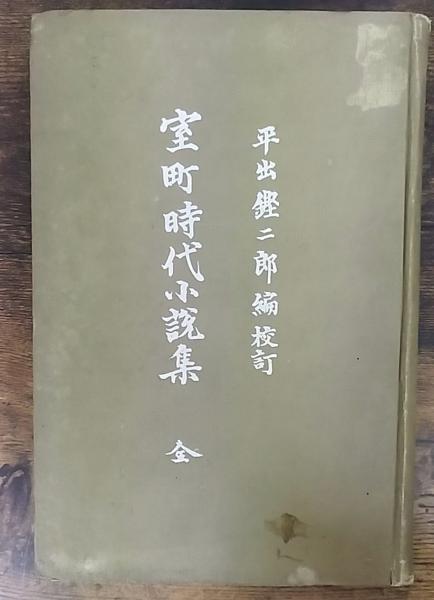 平出鏗二郎編校訂
室町時代小説集 全